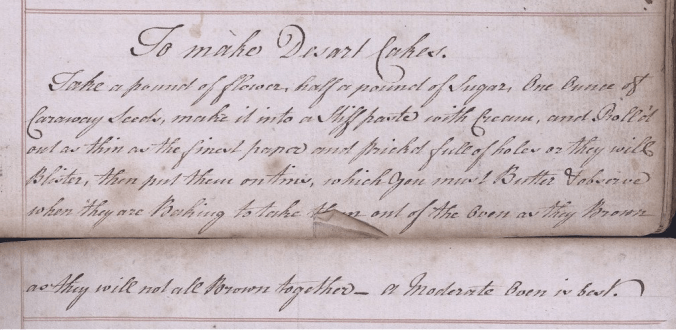 To make Desart Cakes.
Take a pound of flower, half a pound of Sugar, One Ounce of
Caraway Seeds, make it into a Stiff paste with Cream, and Roll'd
out as thin as the finest paper and prickd full of holes or they will
Blister, then put them on tins, which you must Butter & observe
when they are Baking to take them out of the Oven as they Brown
as they will not all Brown together – a Moderate Oven is best.